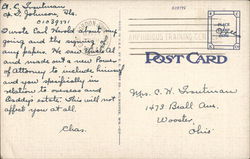 Lt. C. Troutman
Co. S. Johnson, Sta.
01039171
Wrote Carl Harold about my
going and the signing of
any papers. We saw Uncle Al
and made out a new Power
of Attorney to include him
and you specifically in
relation to overseas and
Daddy's estate. This will not
affect you at all.
Chas.
TRAINING
POST CARD
Free
Mrs. C. W. Troutman
1473 Beall Ave.
Wooster,
Ohio